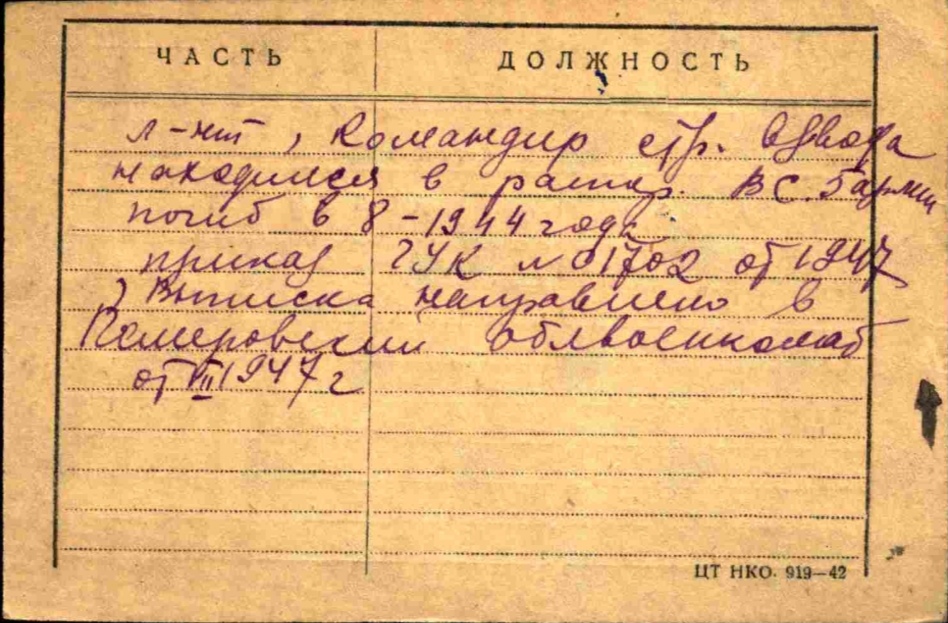 ЧАСТЬ ДОЛЖНОСТЬ
л-нт, Командир стр. взвода
находился в распор. ВС. 5 армии
погиб в 8-1944 году
приказ ГУК № 01702 от 1947
, Выписка направлено в
Кемеровский облвоенкомат
от VII 1947 г
ЦТ НКО. 919—42